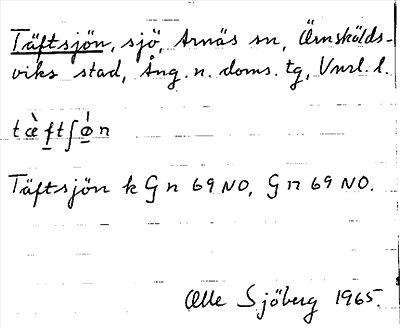 Täftsjön, sjö, Arnäs sn, Örnskölds-
viks stad, Ång. n. doms. tg, Vnrl. l.
tæ̀ftʃø̀n
Täftsjön k G n 69 NO, G n 69 NO.
Olle Sjöberg 1965.